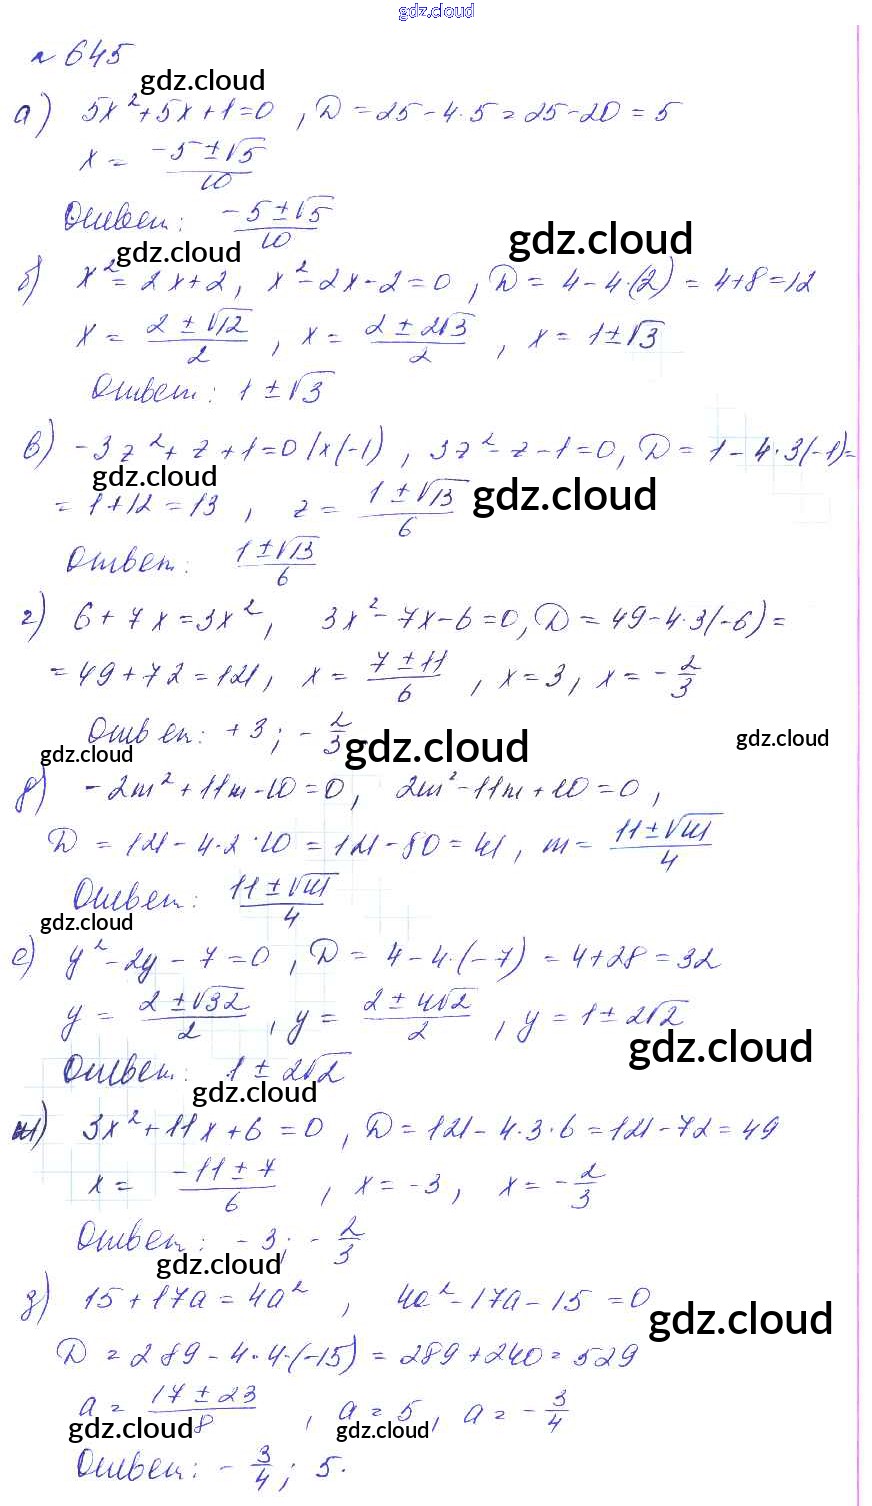 gdz.cloud
№ 645
gdz.cloud
а) 5x² + 5x + 1 = 0 , D = 25 - 4·5 = 25 - 20 = 5
x = (-5 ± √5)/10
Ответ: (-5 ± √5)/10
gdz.cloud gdz.cloud
б) x² = 2x + 2, x² - 2x - 2 = 0 , D = 4 - 4·(2) = 4 + 8 = 12
x = (2 ± √12)/2 , x = (2 ± 2√3)/2 , x = 1 ± √3
Ответ: 1 ± √3
в) -3z² + z + 1 = 0 |x(-1) , 3z² - z - 1 = 0, D = 1 - 4·3(-1) =
gdz.cloud gdz.cloud
= 1 + 12 = 13 , z = (1 ± √13)/6
Ответ: (1 ± √13)/6
г) 6 + 7x = 3x², 3x² - 7x - 6 = 0, D = 49 - 4·3(-6) =
= 49 + 72 = 121, x = (7 ± 11)/6 , x = 3, x = -2/3
Ответ: +3; -2/3
gdz.cloud gdz.cloud gdz.cloud
д) -2m² + 11m - 10 = 0, 2m² - 11m + 10 = 0 ,
D = 121 - 4·2·10 = 121 - 80 = 41, m = (11 ± √41)/4
Ответ: (11 ± √41)/4
gdz.cloud
е) y² - 2y - 7 = 0 , D = 4 - 4·(-7) = 4 + 28 = 32
y = (2 ± √32)/2 , y = (2 ± 4√2)/2 , y = 1 ± 2√2
gdz.cloud
Ответ: 1 ± 2√2
gdz.cloud
ж) 3x² + 11x + 6 = 0 , D = 121 - 4·3·6 = 121 - 72 = 49
x = (-11 ± 7)/6 , x = -3, x = -2/3
Ответ: -3; -2/3
gdz.cloud
з) 15 + 17a = 4a² , 4a² - 17a - 15 = 0
gdz.cloud
D = 289 - 4·4·(-15) = 289 + 240 = 529
a = (17 ± 23)/8 , a = 5, a = -3/4
gdz.cloud gdz.cloud
Ответ: -3/4; 5.